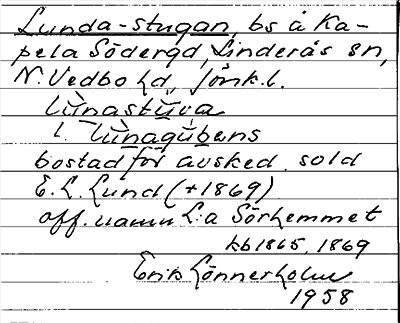 Lunda-stugan, bs å Ka-
pela Södergd, Linderås sn,
N. Vedbo hd, Jönk. l.
lùnastùva
l. lùnagùbens
bostad för avsked. sold
E. L. Lund (+1869)
off. namn L:a Sörhemmet
kb 1865, 1869
Erik Lönnerholm
1958